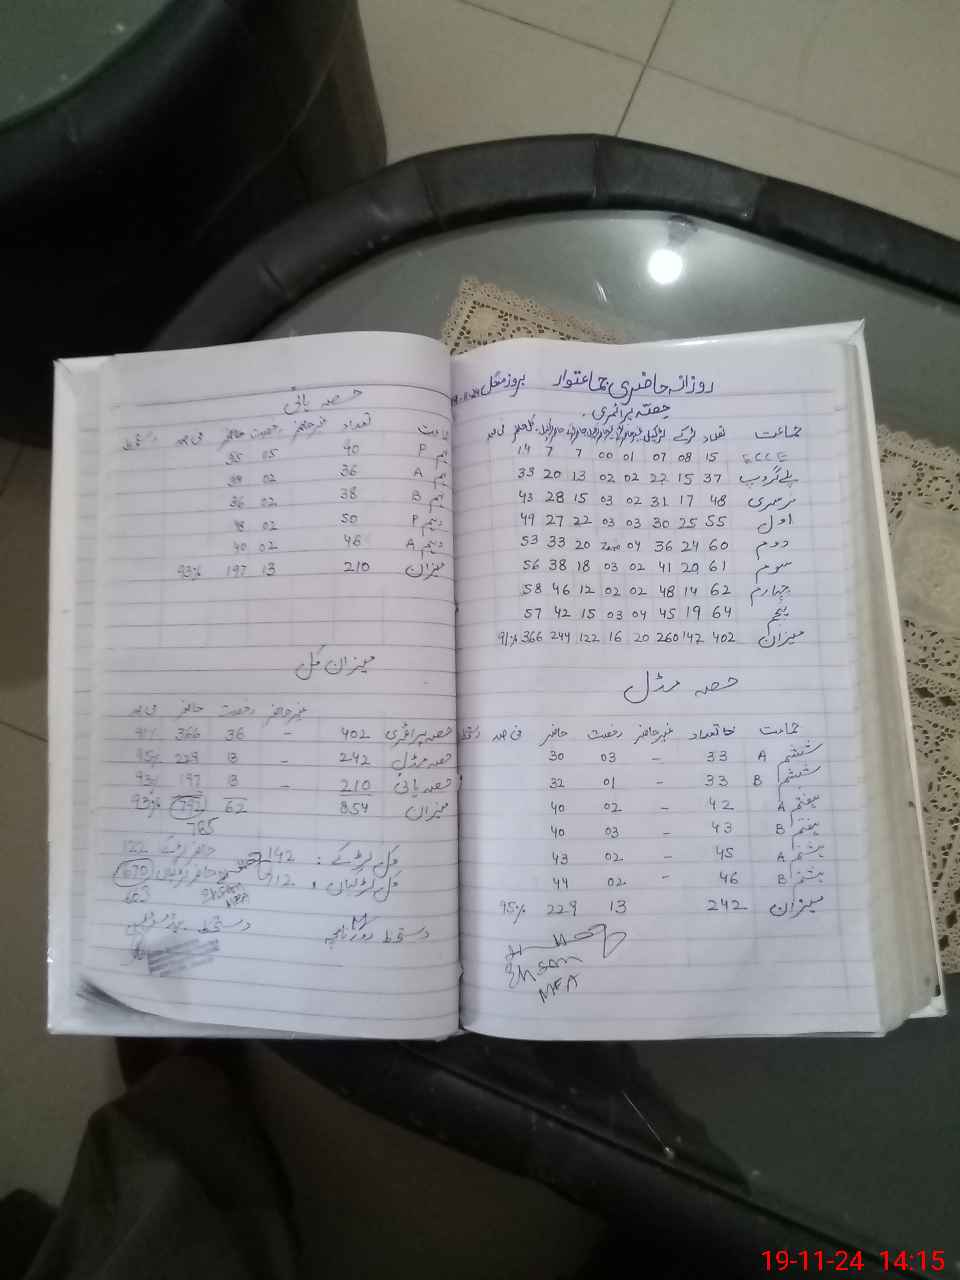 روزانہ حاضری جماعتوار بروز منگل
حصہ پرائمری
جماعت تعداد لڑکے لڑکیاں فی صد
ECCE 15 08 07 01 00 7 7 14
پلے گروپ 37 15 22 02 02 13 20 33
نرسری 48 17 31 02 03 15 28 43
اول 55 25 30 03 03 22 27 49
دوم 60 24 36 04 Zero 20 33 53
سوم 61 20 41 02 03 18 38 56
چہارم 62 14 48 02 02 12 46 58
پنجم 64 19 45 04 03 15 42 57
میزان 402 142 260 20 16 122 244 366 91%
حصہ مڈل
جماعت تعداد غیرحاضر رخصت حاضر فی صد دستخط
ششم A 33 - 03 30
ششم B 33 - 01 32
ہفتم A 42 - 02 40
ہفتم B 43 - 03 40
ہشتم A 45 - 02 43
ہشتم B 46 - 02 44
میزان 242 13 229 95%
Ehsan
MEA
حصہ ہائی
جماعت تعداد غیرحاضر رخصت حاضر فی صد دستخط
نہم P 40 05 35
نہم A 36 02
نہم B 38 02 36
دہم P 50 02 48
دہم A 46 02
میزان 210 13 197 93%
میزان کل
غیرحاضر رخصت حاضر فی صد
حصہ پرائمری 402 - 36 366 91%
حصہ مڈل 242 - 13 229 95%
حصہ ہائی 210 - 13 197 93%
میزان 854 62 792 93%
785
کل لڑکے : 142 حاضر لڑکے 122
کل لڑکیاں : 712 حاضر لڑکیاں 670
663
Ehsan
MEA
دستخط روزنامچہ دستخط ہیڈمسٹریس
19-11-24 14:15